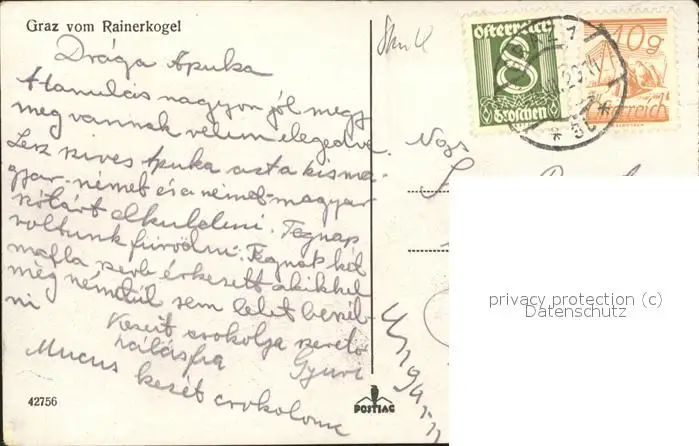 Graz vom Rainerkogel
Drága Apuka
A tanulás nagyon jól megy
meg vannak velem elegedve.
Lesz szives Apuka azt a kis ma-
gyar-német és a német-magyar
szótárt elküldeni. Tegnap
voltunk fürödni. Tegnap két
mafla szerb érkezett akikkel
még németűl sem lehet beszél-
ni
Keseit csokolja szerető
hálásfia Gyuri
Mucus kezét csokolom
42756
POSTIAG
Österreich
8
Groschen
10g
Österreich
Nagys.
Ungarn
privacy protection (c)
Datenschutz